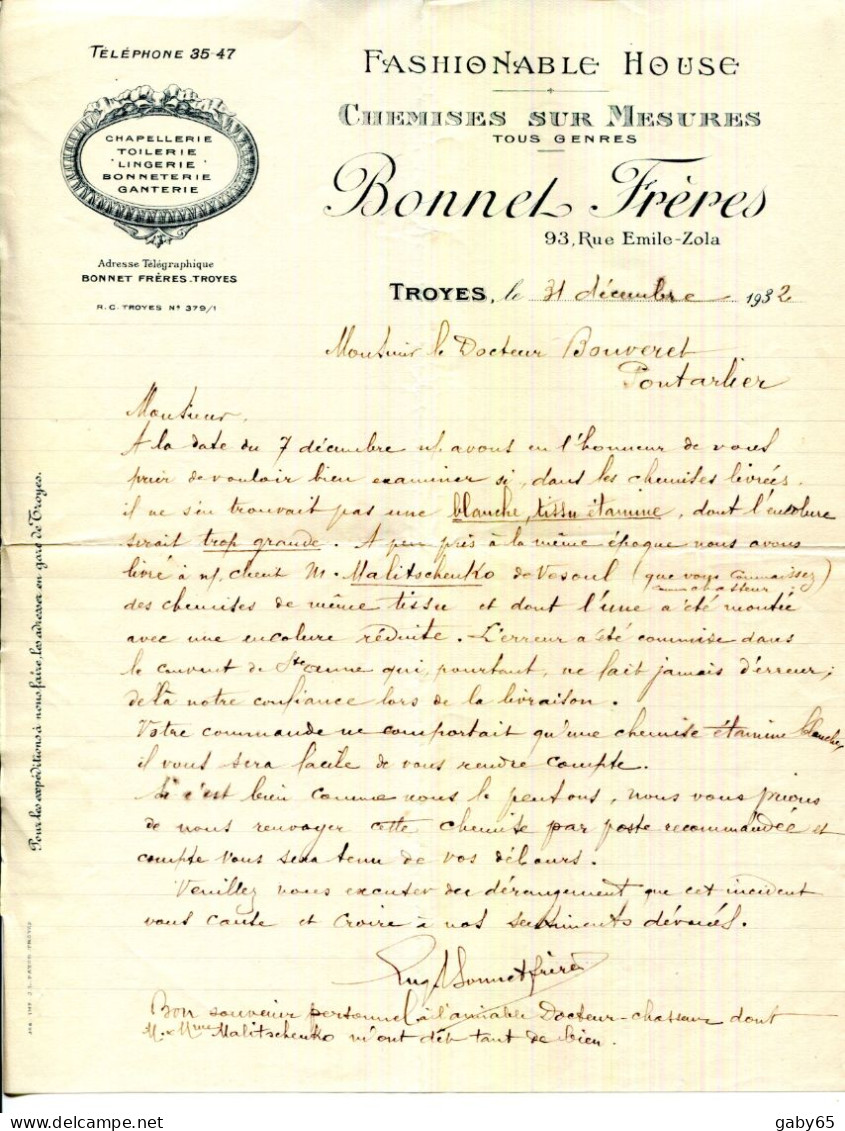 TÉLÉPHONE 35-47
CHAPELLERIE
TOILERIE
LINGERIE
BONNETERIE
GANTERIE
Adresse Télégraphique
BONNET FRÈRES.TROYES
R.C. TROYES Nº 379/1
FASHIONABLE HOUSE
CHEMISES SUR MESURES
TOUS GENRES
Bonnet Frères
93, Rue Emile-Zola
TROYES, le 31 décembre 1932
Monsieur le Docteur Bouveret
Pontarlier
Monsieur,
A la date du 7 décembre n/ avons eu l'honneur de vous
prier de vouloir bien examiner si, dans les chemises livrées,
il ne s'en trouvait pas une blanche, tissu étamine, dont l'encolure
serait trop grande. A peu près à la même époque nous avons
livré à n/ client M. Malitschenko de Vesoul (que vous connaissez)
chasteur
des chemises de même tissu et dont l'une a été montée
avec une encolure réduite. L'erreur a été commise dans
le couvent de Ste Anne qui, pourtant, ne fait jamais d'erreur;
de là notre confiance lors de la livraison.
Votre commande ne comportait qu'une chemise étamine blanche,
il vous sera facile de vous rendre compte.
Si c'est bien comme nous le pensons, nous vous prions
de nous renvoyer cette chemise par poste recommandée et
compte vous sera tenu de vos débours.
Veuillez nous excuser du dérangement que cet incident
vous cause et croire à nos sentiments dévoués.
Bonnet frères
Bon souvenir personnel à l'aimable Docteur-chasseur dont
M. & Mme Malitschenko m'ont dit tant de bien.
Pour les expéditions à nous faire, les adresser en gare de Troyes.
gaby65